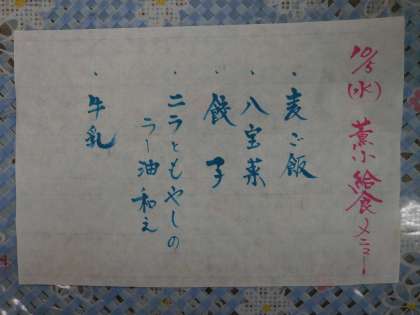 10/5(水) 薫小給食メニュー
・麦ご飯
・八宝菜
・餃子
・ニラともやしの
ラー油和え
・牛乳